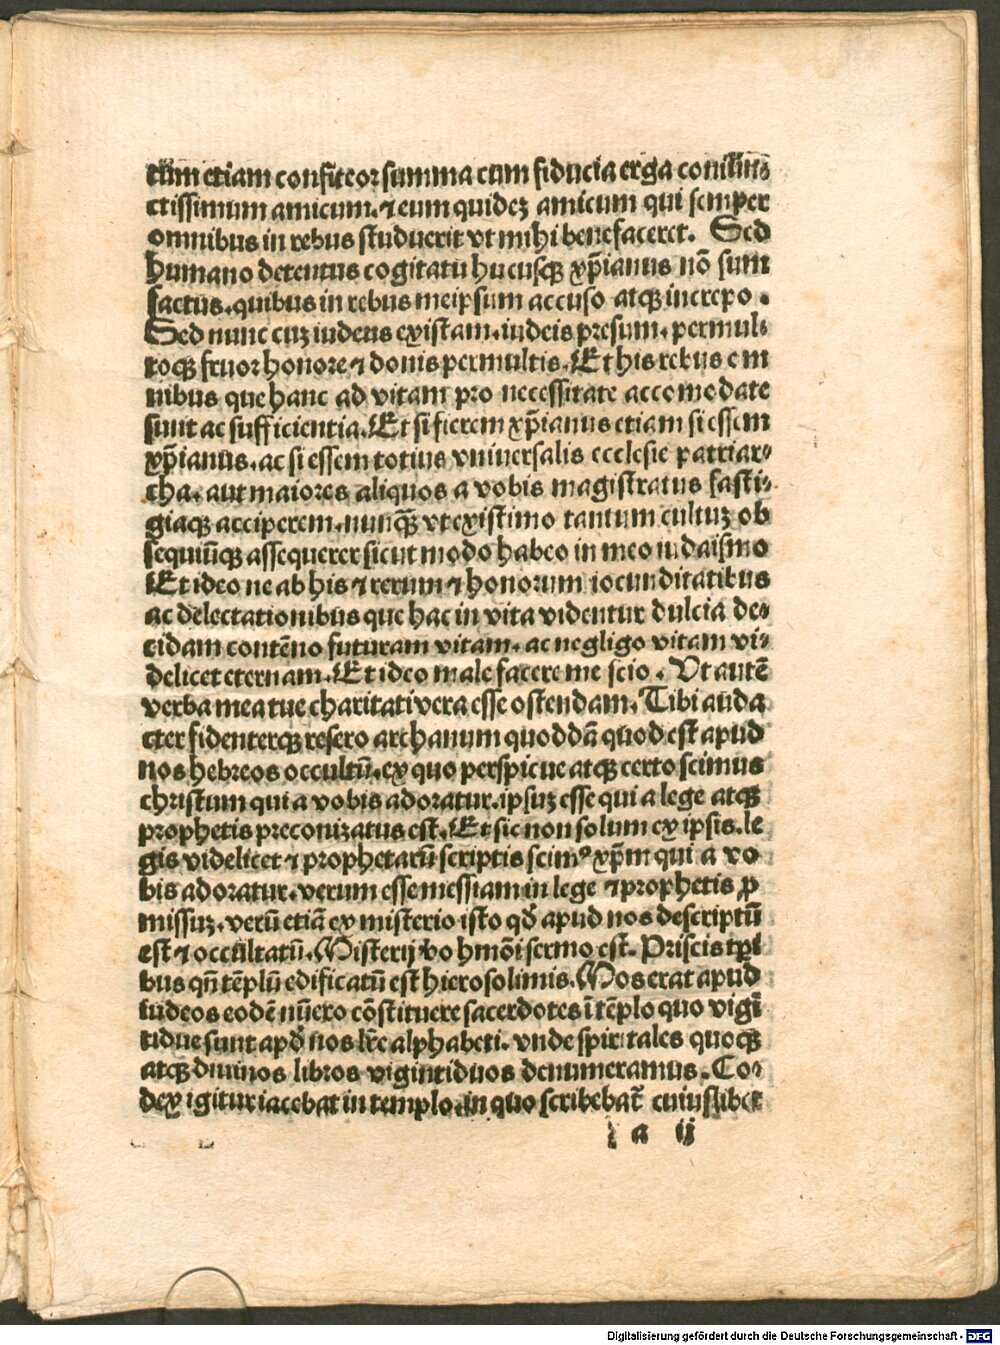 tum etiam confiteor summa cum fiducia erga coniun⸗
ctissimum amicum.⁊ eum quidez amicum qui semper
omnibus in rebus studuerit vt mihi benefaceret. Sed
humano detentus cogitatu hucusqꝫ xp̄ianus nō sum
factus.quibus in rebus meipsum accuso atqꝫ increpo.
Sed nunc cuz iudeus existam.iudeis presum.permul⸗
toqꝫ fruor honore ⁊ donis permultis.Et his rebus om
nibus que hanc ad vitam pro necessitate accomodate
sunt ac sufficientia.Et si fierem xp̄ianus etiam si essem
xp̄ianus.ac si essem totius vniuersalis ecclesie patriar⸗
cha.aut maiores aliquos a vobis magistratus fasti⸗
giaqꝫ acciperem.nunqꝫ̄ vt existimo tantum cultuz ob
sequiūqꝫ assequerer sicut modo habeo in meo iudaismo
Et ideo ne ab his ⁊ rerum ⁊ honorum iocunditatibus
ac delectationibus que hac in vita videntur dulcia de⸗
cidam contēno futuram vitam.ac negligo vitam vi⸗
delicet eternam.Et ideo male facere me scio. Vt autē
verba mea tue charitati vera esse ostendam.Tibi auda
cter fidenterqꝫ resero archanum quoddā quod est apud
nos hebreos occultū.ex quo perspicue atqꝫ certo scimus
christum qui a vobis adoratur.ipsuz esse qui a lege atqꝫ
prophetis preconizatus est.Et sic non solum ex ipsis.le
gis videlicet ⁊ prophetarū scriptis scimꝰ xp̄m qui a vo
bis adoratur.verum esse messiam in lege ⁊ prophetis ꝓ
missuz.verū etiā ex misterio isto qđ apud nos descriptū
est ⁊ occultatū.Misterij ṽo hmōi sermo est.Priscis tꝑi
bus qn̄ tēplū edificatū est hierosolimis.Mos erat apud
iudeos eodē nūero cōstituere sacerdotes ī tēplo quo vigī
tidue sunt apđ nos lr̄e alphabeti.vnde spiritales quoqꝫ
atqꝫ diuinos libros vigintiduos denumeramus.Co⸗
dex igitur iacebat in templo.in quo scribebat̄ cuiuslibet
a ij
Digitalisierung gefördert durch die Deutsche Forschungsgemeinschaft - DFG